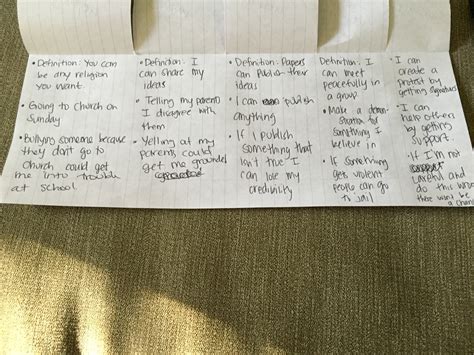 • Definition: You can
be any religion
you want.
• Going to Church on
Sunday
• Bullying someone because
they don't go to
Church could get
me into trouble
at school
• Definition: I
can share my
ideas
• Telling my parents
I disagree with
them
• Yelling at my
parents could
get me grounded
• Definition: Papers
can Publish their
ideas
• I can publish
anything
• If I publish
something that
isn't true I
can lose my
credibility
Definition: I
can meet
peacefully in
a group
• Make a demon-
stration for
something I
believe in
• If something
gets violent
people can go
to jail
• I can
create a
protest by
getting signatures
• I can
help others
by getting
support
• If I'm not
careful and
do this
there won't be
a